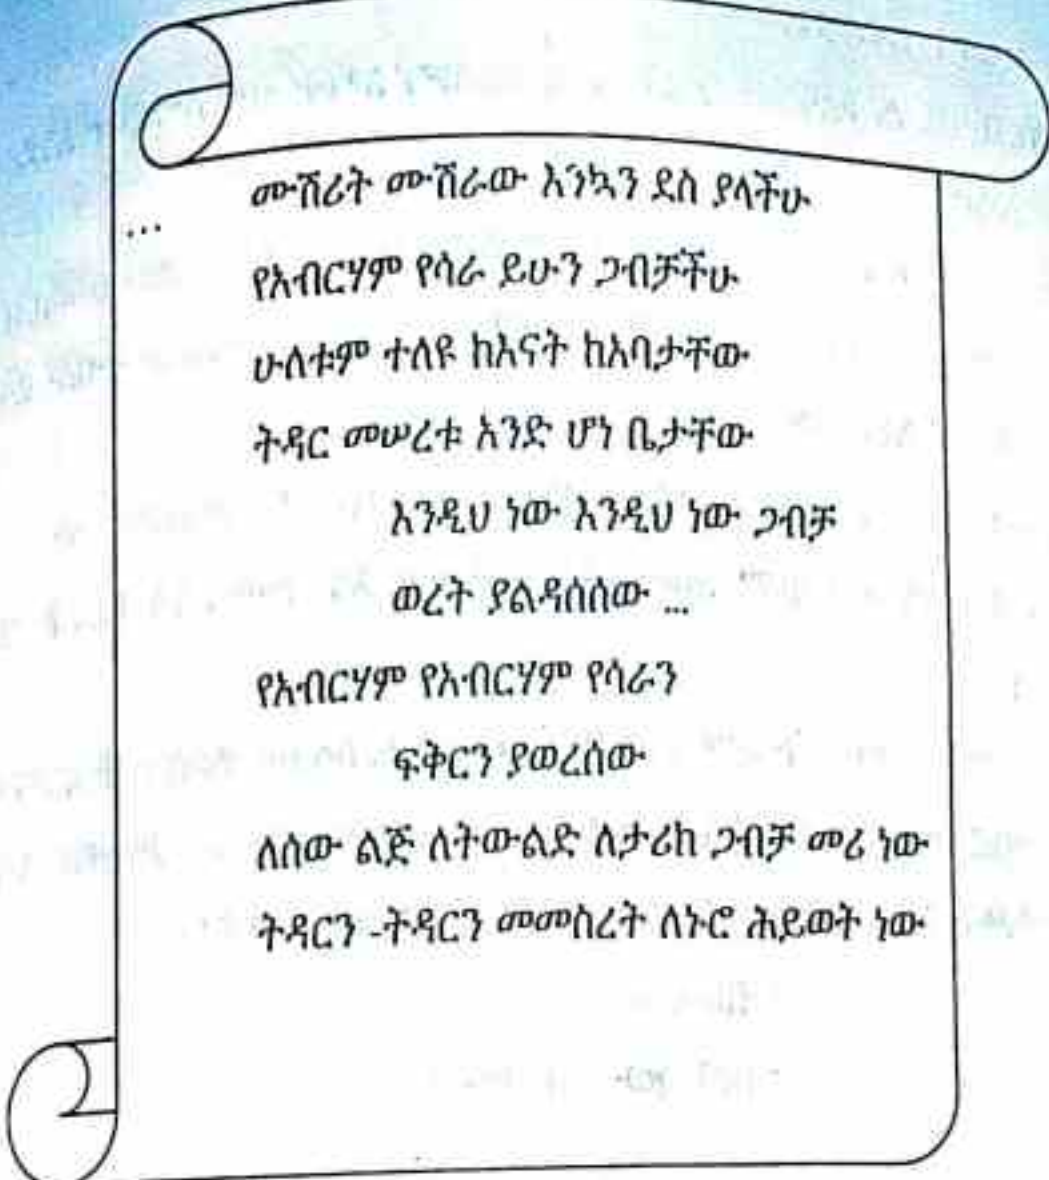 ሙሽሪት ሙሽራው እንኳን ደስ ያላችሁ
...
የአብርሃም የሳራ ይሁን ጋብቻችሁ
ሁለቱም ተለዩ ከእናት ከአባታቸው
ትዳር መሠረቱ አንድ ሆነ ቤታቸው
እንዲህ ነው እንዲህ ነው ጋብቻ
ወረት ያልዳሰሰው ...
የአብርሃም የአብርሃም የሳራን
ፍቅርን ያወረሰው
ለሰው ልጅ ለትውልድ ለታሪክ ጋብቻ መሪ ነው
ትዳርን -ትዳርን መመስረት ለኑሮ ሕይወት ነው